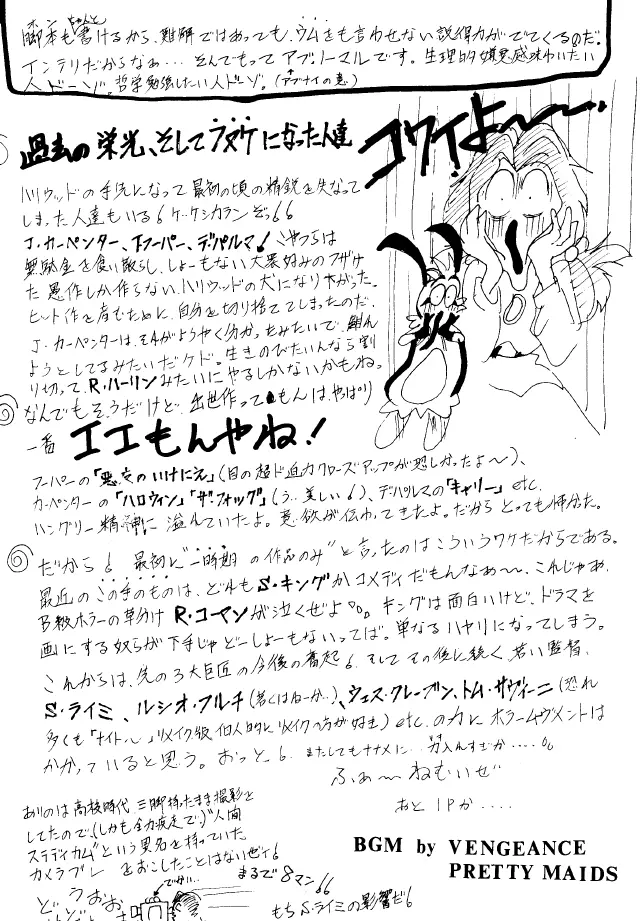 ホン ちゃんと
脚本も書けるから、難解ではあっても、ウムをも言わせない説得力がでてくるのだ。
インテリだからなぁ…そんでもってアブノーマルです。生理的嫌悪感味わいたい
人ドーゾ。哲学勉強したい人ドーゾ。(アブナイの意)
過去の栄光、そしてフヌケになった人達
コワイよ〜〜・
ハリウッドの手先になって最初の頃の精鋭を失なって
しまった人達もいる！ケッケシカランぞっ！！
J・カーペンター、T・フーパー、デパルマ！こやつらは
無駄金を食い散らし、しょーもない大衆好みのフザけ
た悪作しか作らない、ハリウッドの犬になり下がった。
ヒット作を産むために、自分を切り捨ててしまったのだ。
J・カーペンターは、それがようやく分かったみたいで、
ようとしてるみたいだケド。生きのびたいんなら割
り切ってR・ハーリンみたいにやるしかないかもね。
なんでもそうだけど、出世作ってもんは、やっぱり
一番 エエもんやね！
フーパーの「悪魔のいけにえ」(目の超ド迫力クローズアップが恐しかったよ〜)、
カーペンターの「ハロウィン」「ザ・フォッグ」(う…美しい！)、デパルマの「キャリー」etc.
ハングリー精神に溢れていたよ。意欲が伝わってきたよ。だからとっても怖かった。
だから！最初に"一時期の作品のみ"と言ったのはこういうワケだからである。
最近のこの手のものは、どれもS・キングかコメディだもんなぁ〜、これじゃあ、
B級ホラーの草分けR・コーマンが泣くぜよ。。。キングは面白いけど、ドラマを
画にする奴らが下手じゃどーしょーもないってば。単なるハヤリになってしまう。
これからは、先の3大巨匠の今後の奮起！そしてその後に続く、若い監督、
S・ライミ、ルシオ・フルチ(若くはねーが…)、ウェス・クレーブン、トム・サヴィーニ(恐れ
多くも「ナイト〜」リメイク版 個人的にリメイクの方が好き)etc.の力にホラームーヴメントは
かかっていると思う。おっと！またしてもナナメに…力入れすぎか……。。
ふぁ〜ねむいぜ
あと1Pか....
ありのは高校時代、三脚持ったまま撮影を
してたので、(しかも全力疾走で)"人間
ステディカム"という異名を持っていた。
カメラブレをおこしたことはないぜィ！
まるで8マン！！
もちS・ライミの影響だ！
どうおお
BGM by VENGEANCE
PRETTY MAIDS